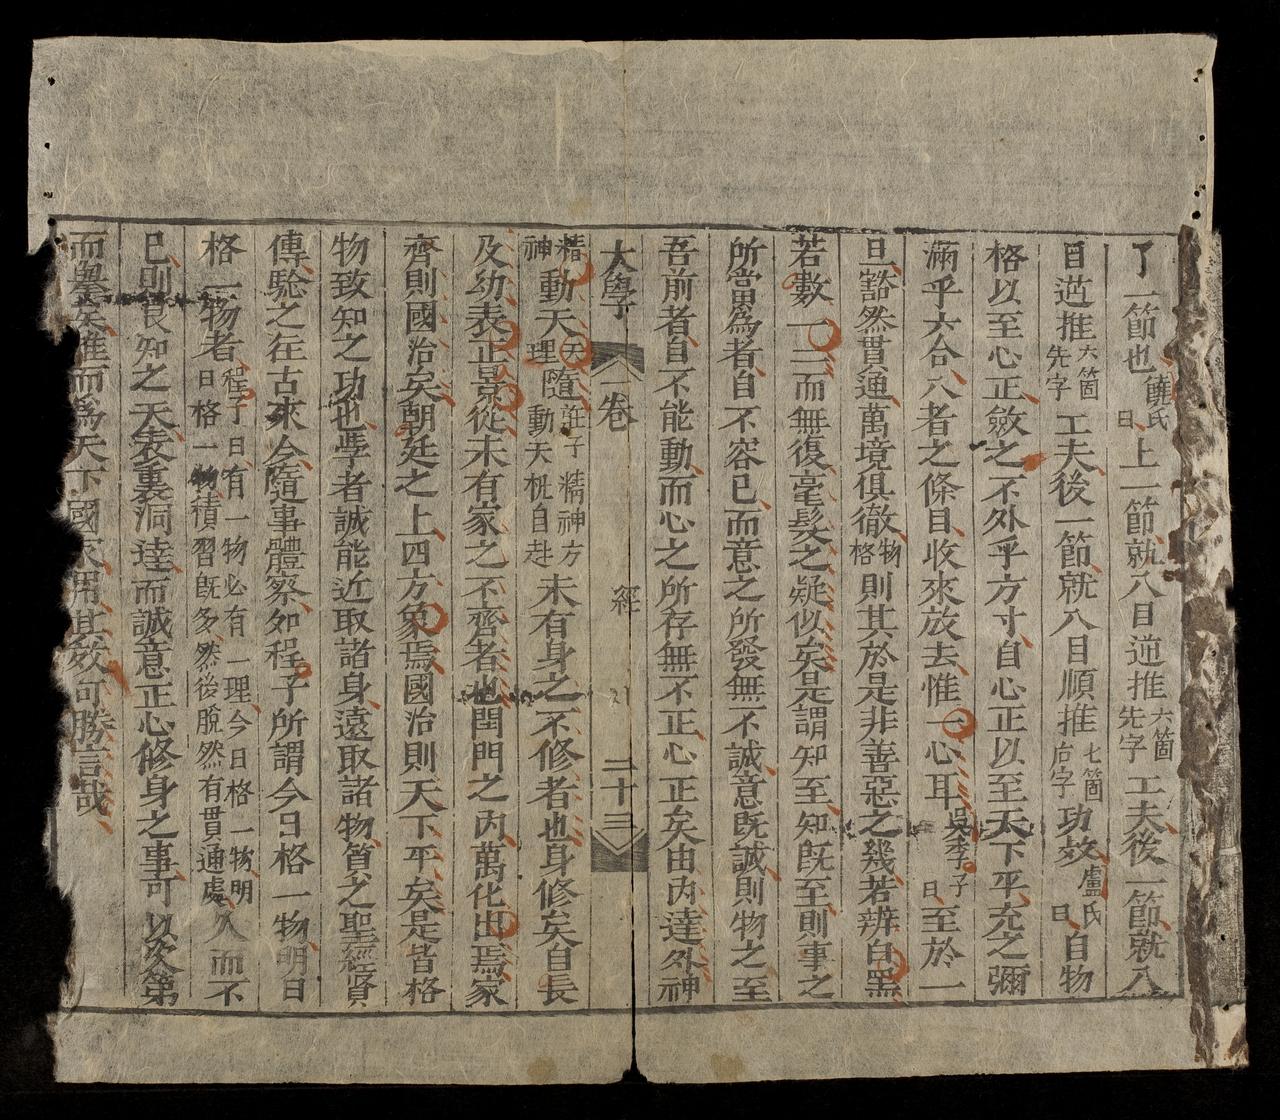 了一節也饒氏曰上一節就八目逆推六箇先字工夫後一節就八
目逆推六箇先字工夫後一節就八目順推七箇后字功效盧氏曰自物
格以至心正斂之不外乎方寸自心正以至天下平充之彌
滿乎六合八者之條目收來放去惟一心耳吳季子曰至於一
旦豁然貫通萬境俱徹物格則其於是非善惡之幾若辨白黑
若數一二而無復毫髮之疑似矣是謂知至知旣至則事之
所當爲者自不容已而意之所發無一不誠意旣誠則物之至
吾前者自不能動而心之所存無不正心正矣由內達外神
大學 一卷 經 二十三
精神動天天理隨莊子精神方動天機自赴未有身之不修者也身修矣自長
及幼表正景從未有家之不齊者也閨門之內萬化出焉家
齊則國治矣朝廷之上四方象焉國治則天下平矣是皆格
物致知之功也學者誠能近取諸身遠取諸物質之聖經賢
傳驗之往古來今隨事體察如程子所謂今日格一物明日
格一物者程子曰有一物必有一理今日格一物明日格一物積習旣多然後脫然有貫通處久而不
已則良知之天表裏洞達而誠意正心修身之事可以次第
而擧矣推而爲天下國家用其效可勝言哉